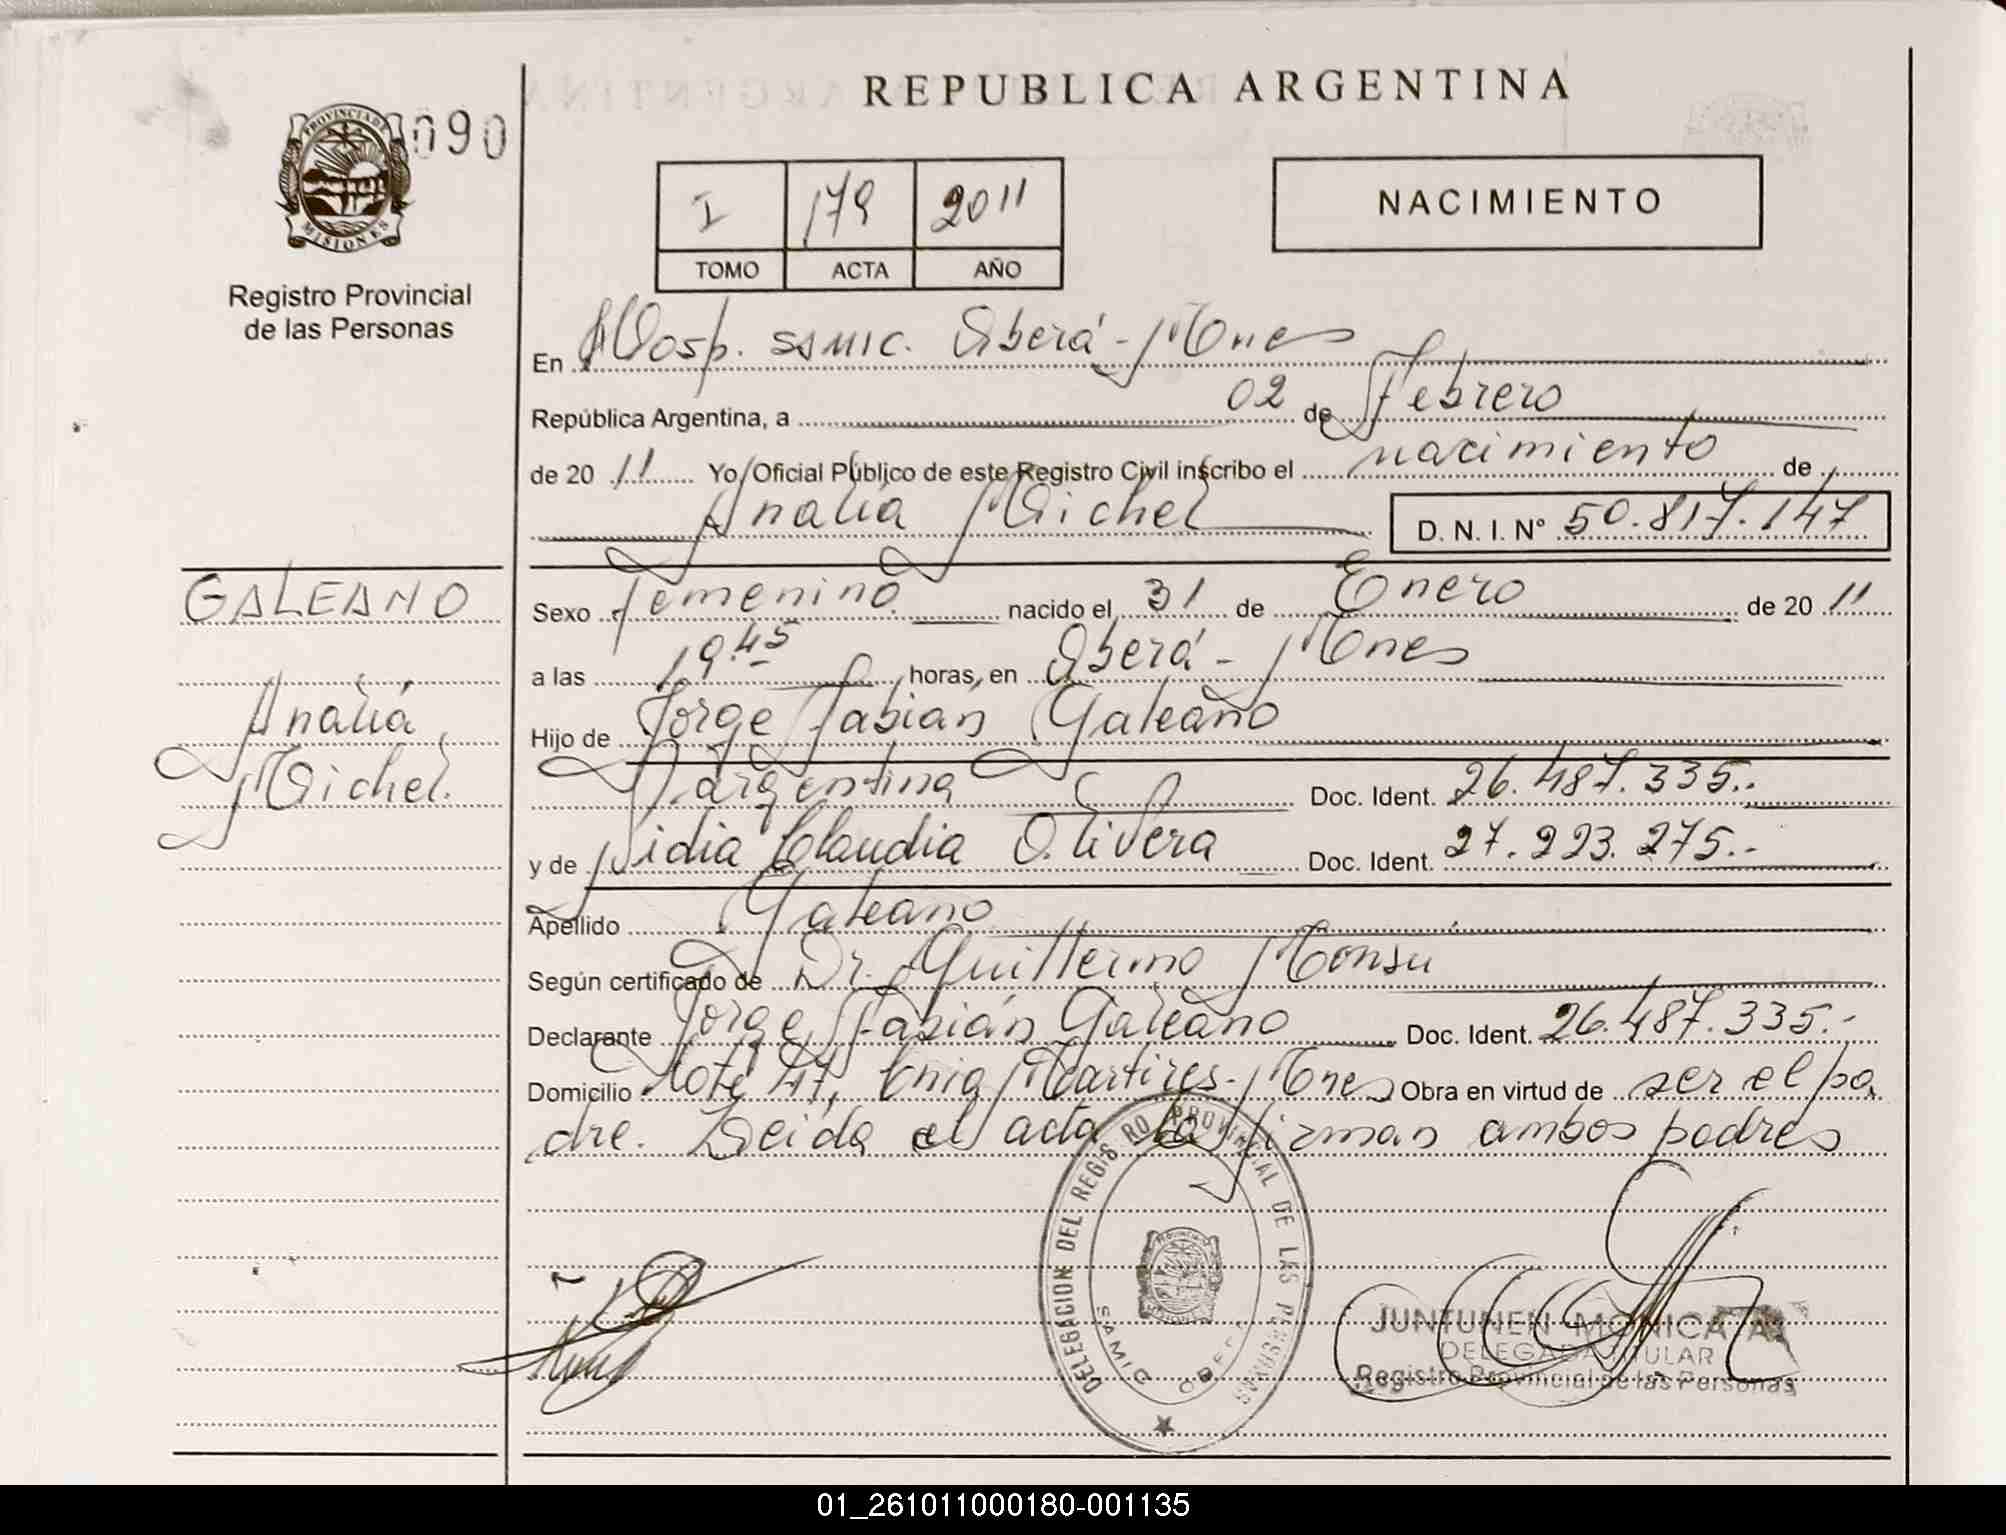 REPUBLICA ARGENTINA
PROVINCIA DE
MISIONES
090
Registro Provincial
de las Personas
I 179 2011
TOMO ACTA AÑO
NACIMIENTO
En Hosp. SAMIC. Oberá - Mnes
República Argentina, a 02 de Febrero
de 20 11 Yo, Oficial Público de este Registro Civil inscribo el nacimiento de
Analía Michel D. N. I. Nº 50.817.147
GALEANO
Analía
Michel.
Sexo Femenino nacido el 31 de Enero de 20 11
a las 19.45 horas, en Oberá - Mnes
Hijo de Jorge Fabian Galeano
Argentina Doc. Ident. 26.487.335.-
y de Nidia Claudia Olivera Doc. Ident. 27.223.275.-
Apellido Galeano
Según certificado de Dr. Guillermo Monsu
Declarante Jorge Fabián Galeano Doc. Ident. 26.487.335.-
Domicilio Lote 47, Cnia Martires - Mnes Obra en virtud de ser el pa
dre. Leida el acta la firman ambos padres
DELEGACION DEL REGISTRO PROVINCIAL DE LAS PERSONAS
SAMIC OBERA
JUNTUNEN MONICA A.
DELEGADA TITULAR
Registro Provincial de las Personas
01_261011000180-001135